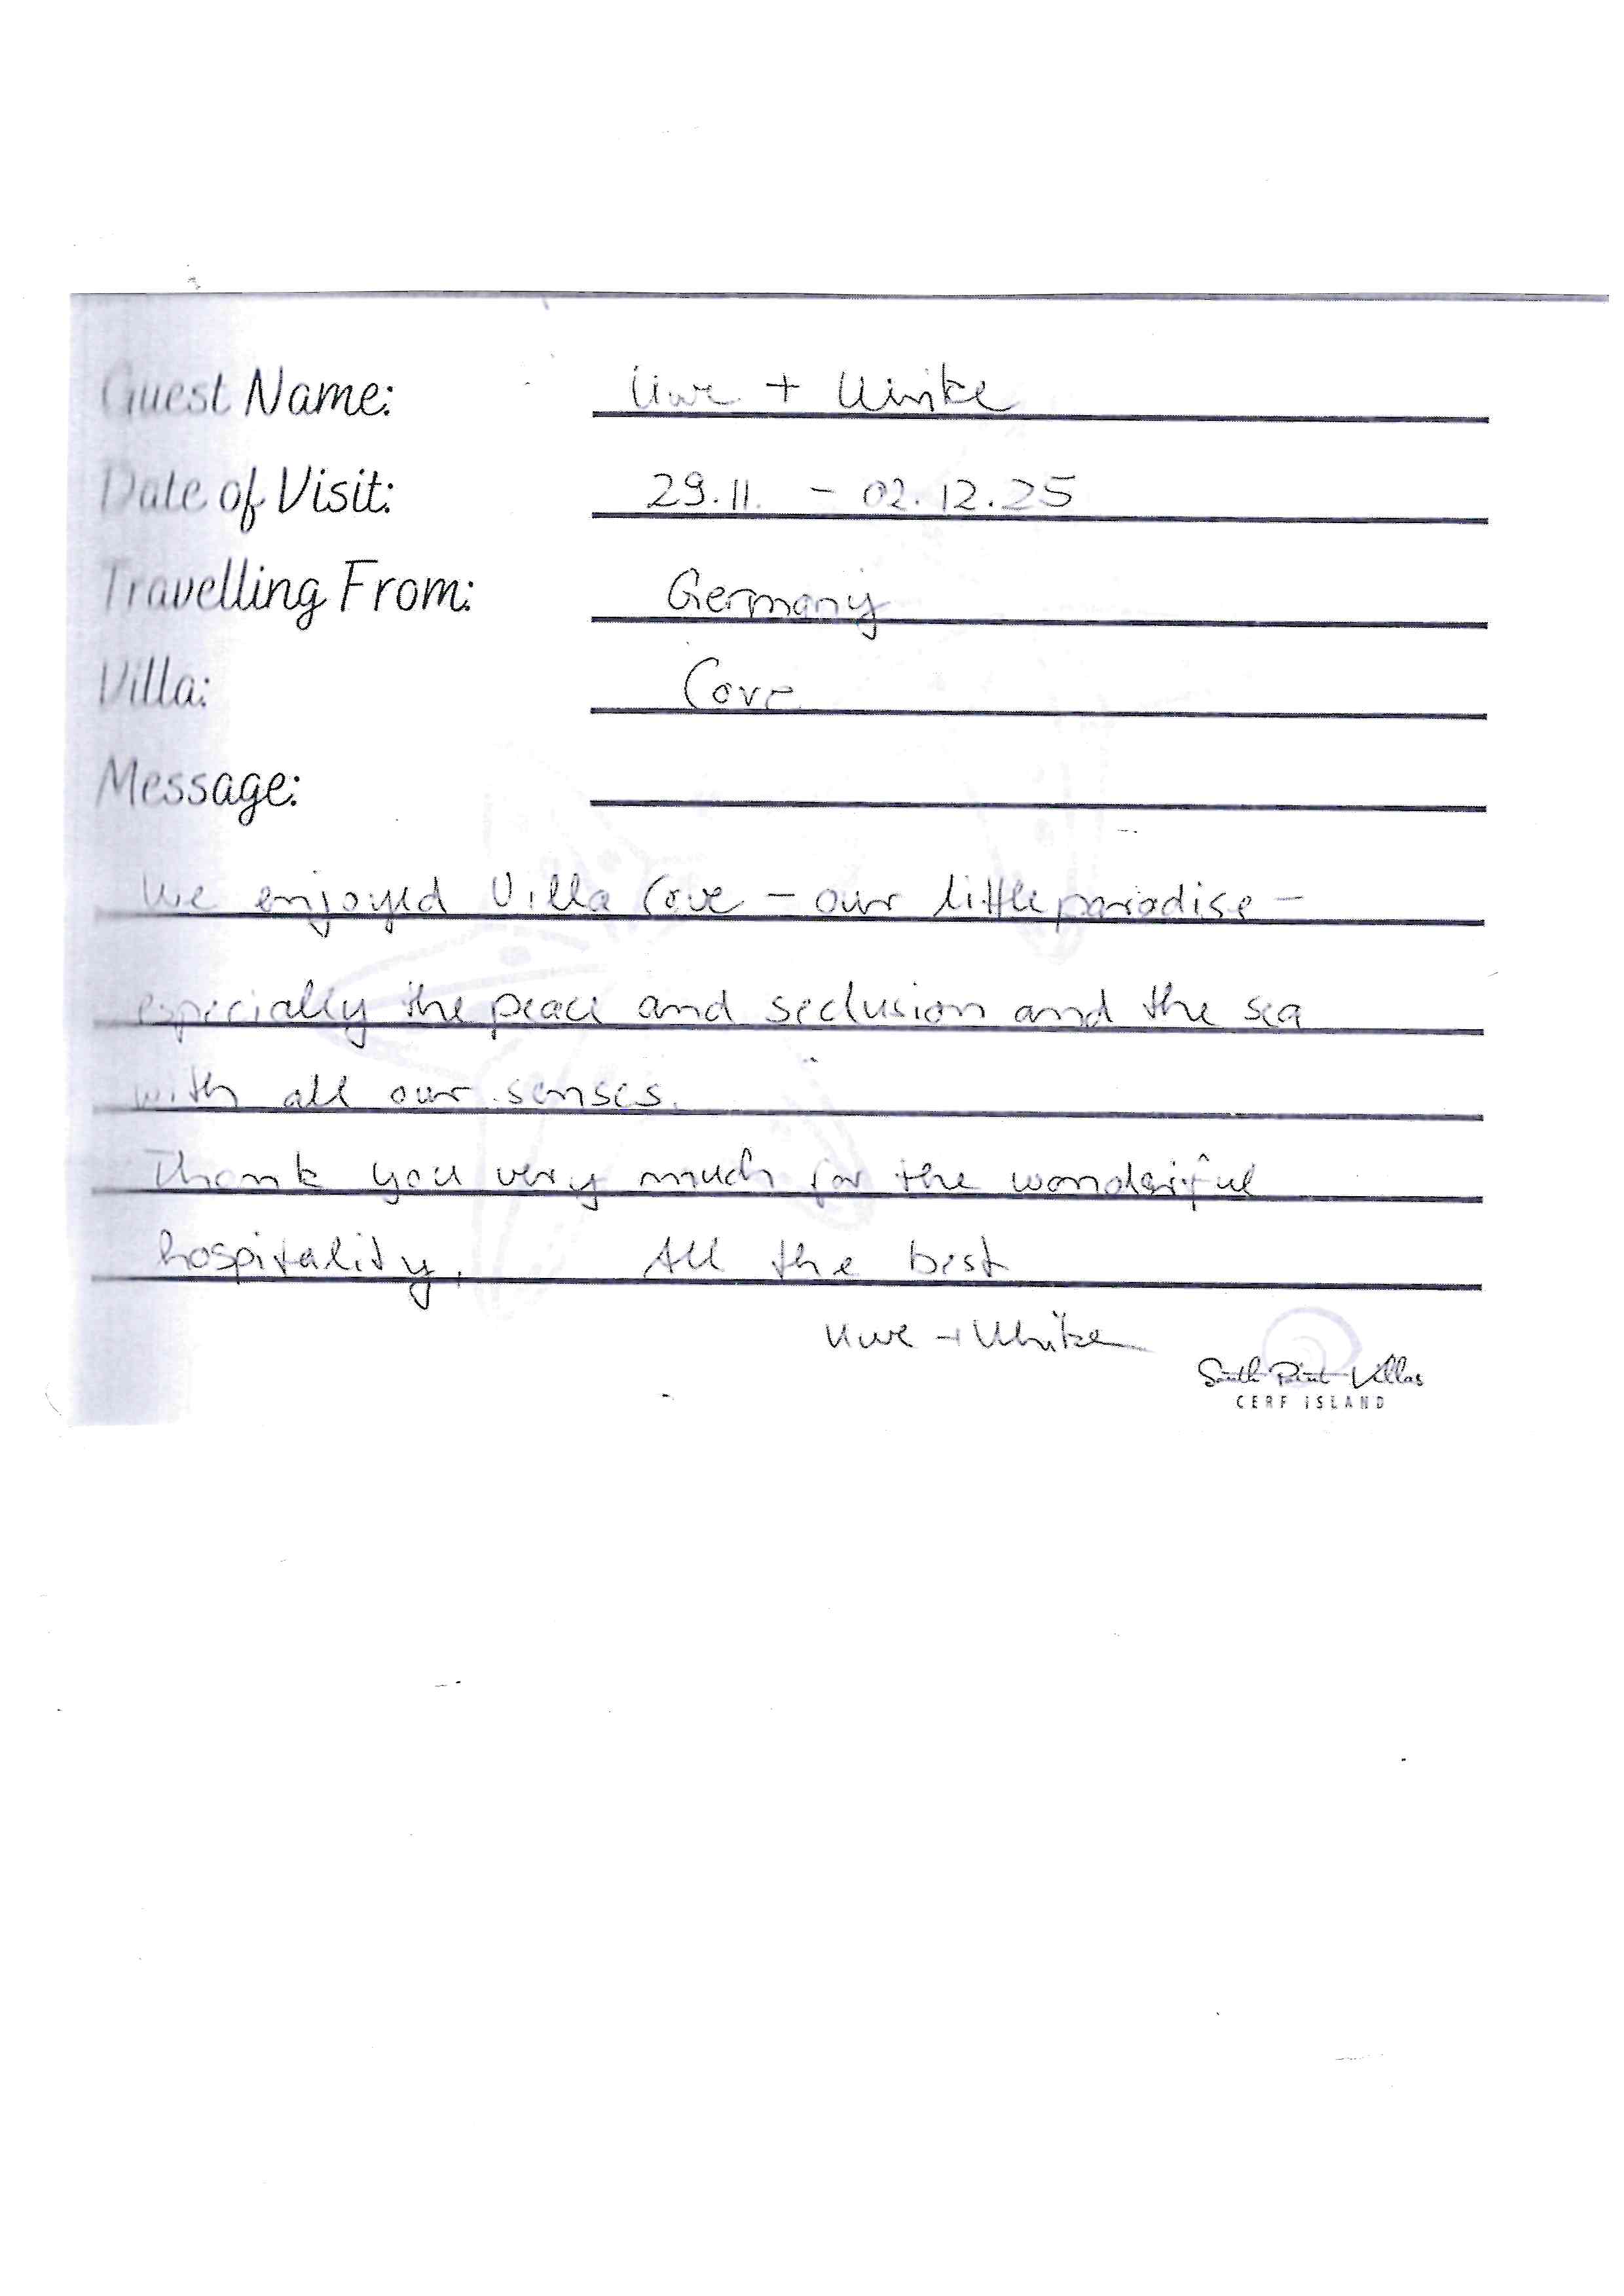 Guest Name: Uwe + Ulrike
Date of Visit: 29.11. - 02.12.25
Travelling From: Germany
Villa: Cove
Message:
We enjoyed Villa Cove – our little paradise –
especially the peace and seclusion and the sea
with all our senses.
Thank you very much for the wonderful
hospitality. All the best
Uwe + Ulrike
South Point Villas
CERF ISLAND